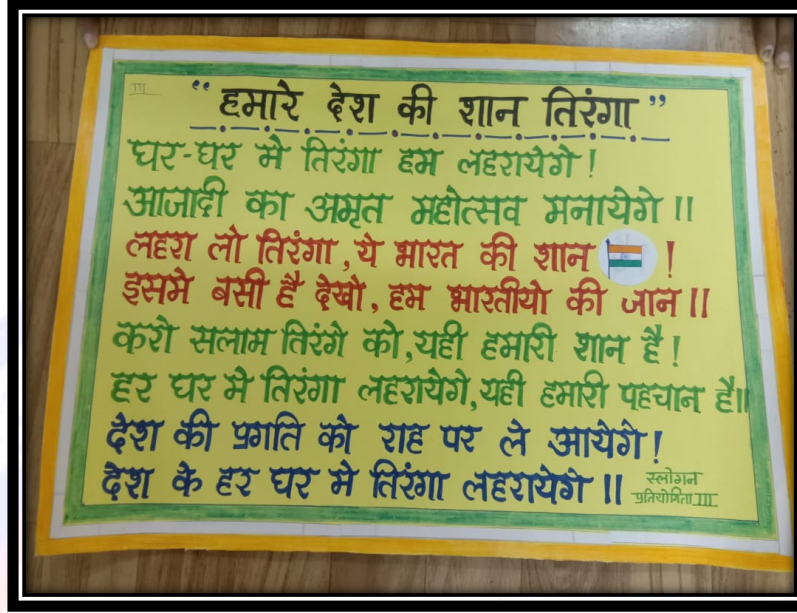 III
“हमारे देश की शान तिरंगा”
घर-घर मे तिरंगा हम लहरायेगे!
आजादी का अमृत महोत्सव मनायेगे॥
लहरा लो तिरंगा, ये भारत की शान !
इसमे बसी है देखो, हम भारतीयो की जान॥
करो सलाम तिरंगे को, यही हमारी शान है!
हर घर मे तिरंगा लहरायेगे, यही हमारी पहचान है॥
देश की प्रगति को राह पर ले आयेगे!
देश के हर घर मे तिरंगा लहरायेगे॥
स्लोगन
प्रतियोगिता III